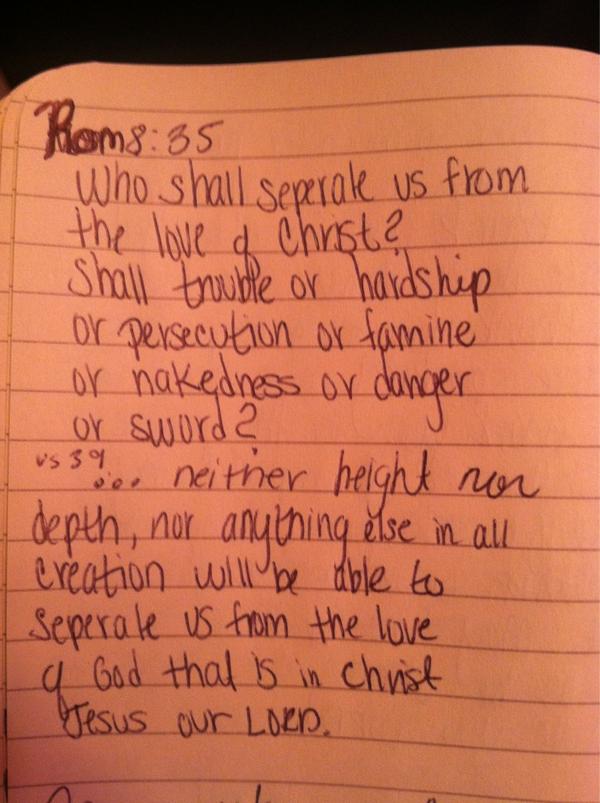 Rom 8:35
Who shall seperate us from
the love of Christ?
Shall trouble or hardship
or persecution or famine
or nakedness or danger
or sword?
vs 39
... neither height nor
depth, nor anything else in all
creation will be able to
seperate us from the love
of God that is in Christ
Jesus our LORD.